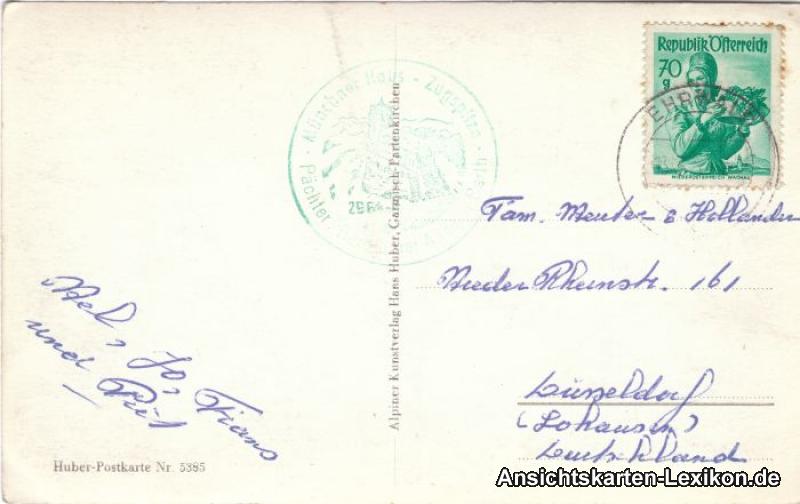 Republik Österreich
70
g
NIEDERÖSTERREICH WACHAU
EHRWALD
Münchner Haus - Zugspitze
Pächter
2964
Alpiner Kunstverlag Hans Huber, Garmisch-Partenkirchen
Fam. Meuter & Hollander
Nieder Rheinstr. 161
Düsseldorf
(Lohausen)
Deutschland
Nel, Jo, Fians
und Piet
Huber-Postkarte Nr. 5385
Ansichtskarten-Lexikon.de